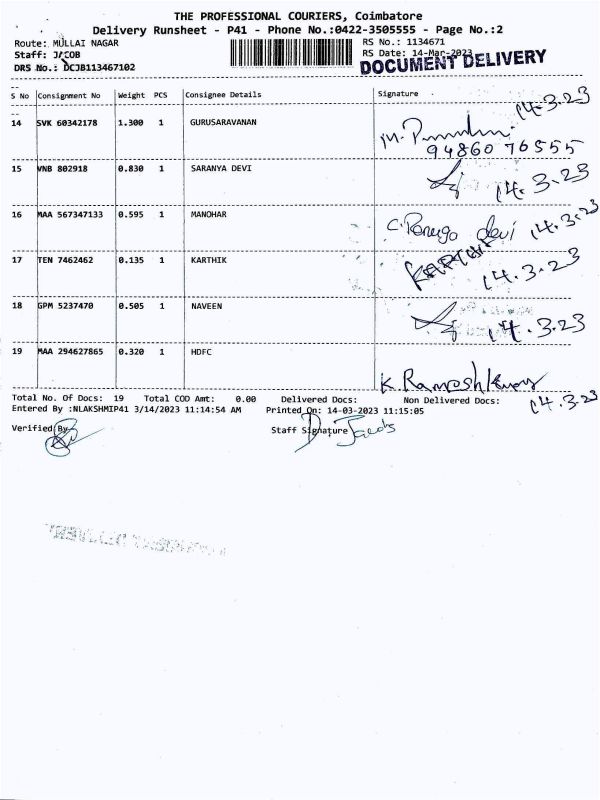 THE PROFESSIONAL COURIERS, Coimbatore
Delivery Runsheet - P41 - Phone No.:0422-3505555 - Page No.:2
Route: MULLAI NAGAR RS No.: 1134671
Staff: JACOB RS Date: 14-Mar-2023
DRS No.: DCJB113467102 DOCUMENT DELIVERY
S No Consignment No Weight PCS Consignee Details Signature
14.3.23
14 SVK 60342178 1.300 1 GURUSARAVANAN
94860 76555
15 VNB 802918 0.830 1 SARANYA DEVI 14.3.23
16 MAA 567347133 0.595 1 MANOHAR C. Renuga devi 14.3.23
17 TEN 7462462 0.135 1 KARTHIK KARTHIK 14.3.23
18 GPM 5237470 0.505 1 NAVEEN 14.3.23
19 MAA 294627865 0.320 1 HDFC
K. Ramesh Kumar
Total No. Of Docs: 19 Total COD Amt: 0.00 Delivered Docs: Non Delivered Docs:
14.3.23
Entered By :NLAKSHMIP41 3/14/2023 11:14:54 AM Printed On: 14-03-2023 11:15:05
Verified By Staff Signature D. Jacob